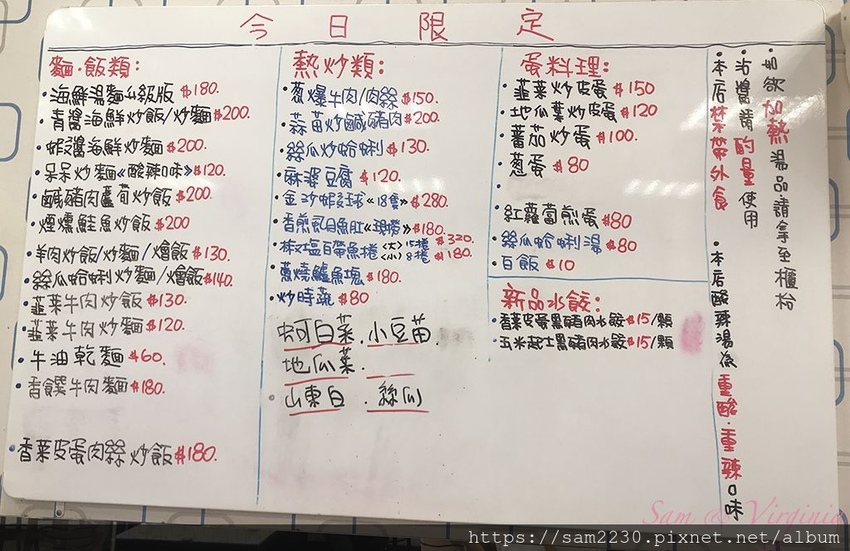 今日限定
麵·飯類:
·海鮮湯麵升級版 $180.
·青醬海鮮炒飯/炒麵 $200.
·蝦醬海鮮炒麵 $200.
·呆呆炒麵《酸辣口味》$120.
·鹹豬肉蘆筍炒飯 $200.
·煙燻鮭魚炒飯 $200
·羊肉炒飯/炒麵/燴飯 $130.
·絲瓜蛤蜊炒麵/燴飯 $140.
·韮菜牛肉炒飯 $130.
·韮菜牛肉炒麵 $120.
·牛油乾麵 $60.
·香饌牛肉麵 $180.
·香菜皮蛋肉絲炒飯 $180.
熱炒類:
·蔥爆牛肉/肉絲 $150.
·蒜苗炒鹹豬肉 $200.
·絲瓜炒蛤蜊 $130.
·麻婆豆腐 $120.
·金沙蝦球《18隻》$280.
·香煎虱目魚肚《現捲》$180.
·椒塩百帶魚捲 <大> 15捲 $320.
<小> 8捲 $180.
·蔥燒鱸魚塊 $180.
·炒時蔬 $80
蚵白菜.小豆苗
地瓜葉.
·山東白.絲瓜
蛋料理:
·韮菜炒皮蛋 $150
·地瓜葉炒皮蛋 $120
·蕃茄炒蛋 $100.
·蔥蛋 $80
·紅蘿蔔煎蛋 $80
·絲瓜蛤蜊湯 $80
·白飯 $10
新品水餃:
·香菜皮蛋黑豬肉水餃 $15/顆
·玉米起士黑豬肉水餃 $15/顆
·如欲加熱湯品請拿至櫃枱
·沾醬請酌量使用
·本店禁帶外食
·本店酸辣湯係重酸·重辣口味
Sam & Virginia
https://sam2230.pixnet.net/album